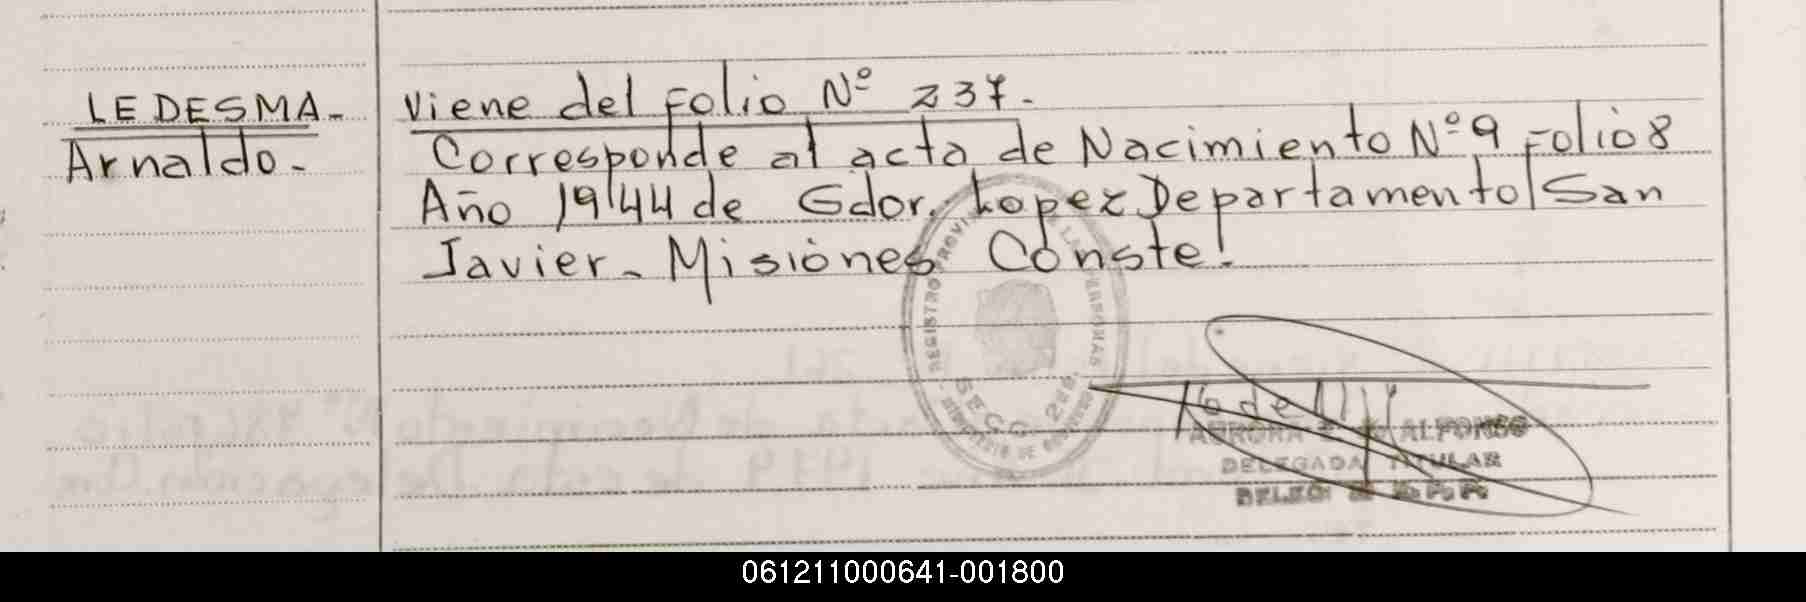 LEDESMA-
Arnaldo-
Viene del Folio Nº 237.
Corresponde al acta de Nacimiento Nº 9 Folio 8
Año 1944 de Gdor. Lopez Departamento San
Javier - Misiones Conste.
REGISTRO PROVINCIAL DE LAS PERSONAS
SECC.
AURORA ALFONSO
DELEGADA TITULAR
061211000641-001800